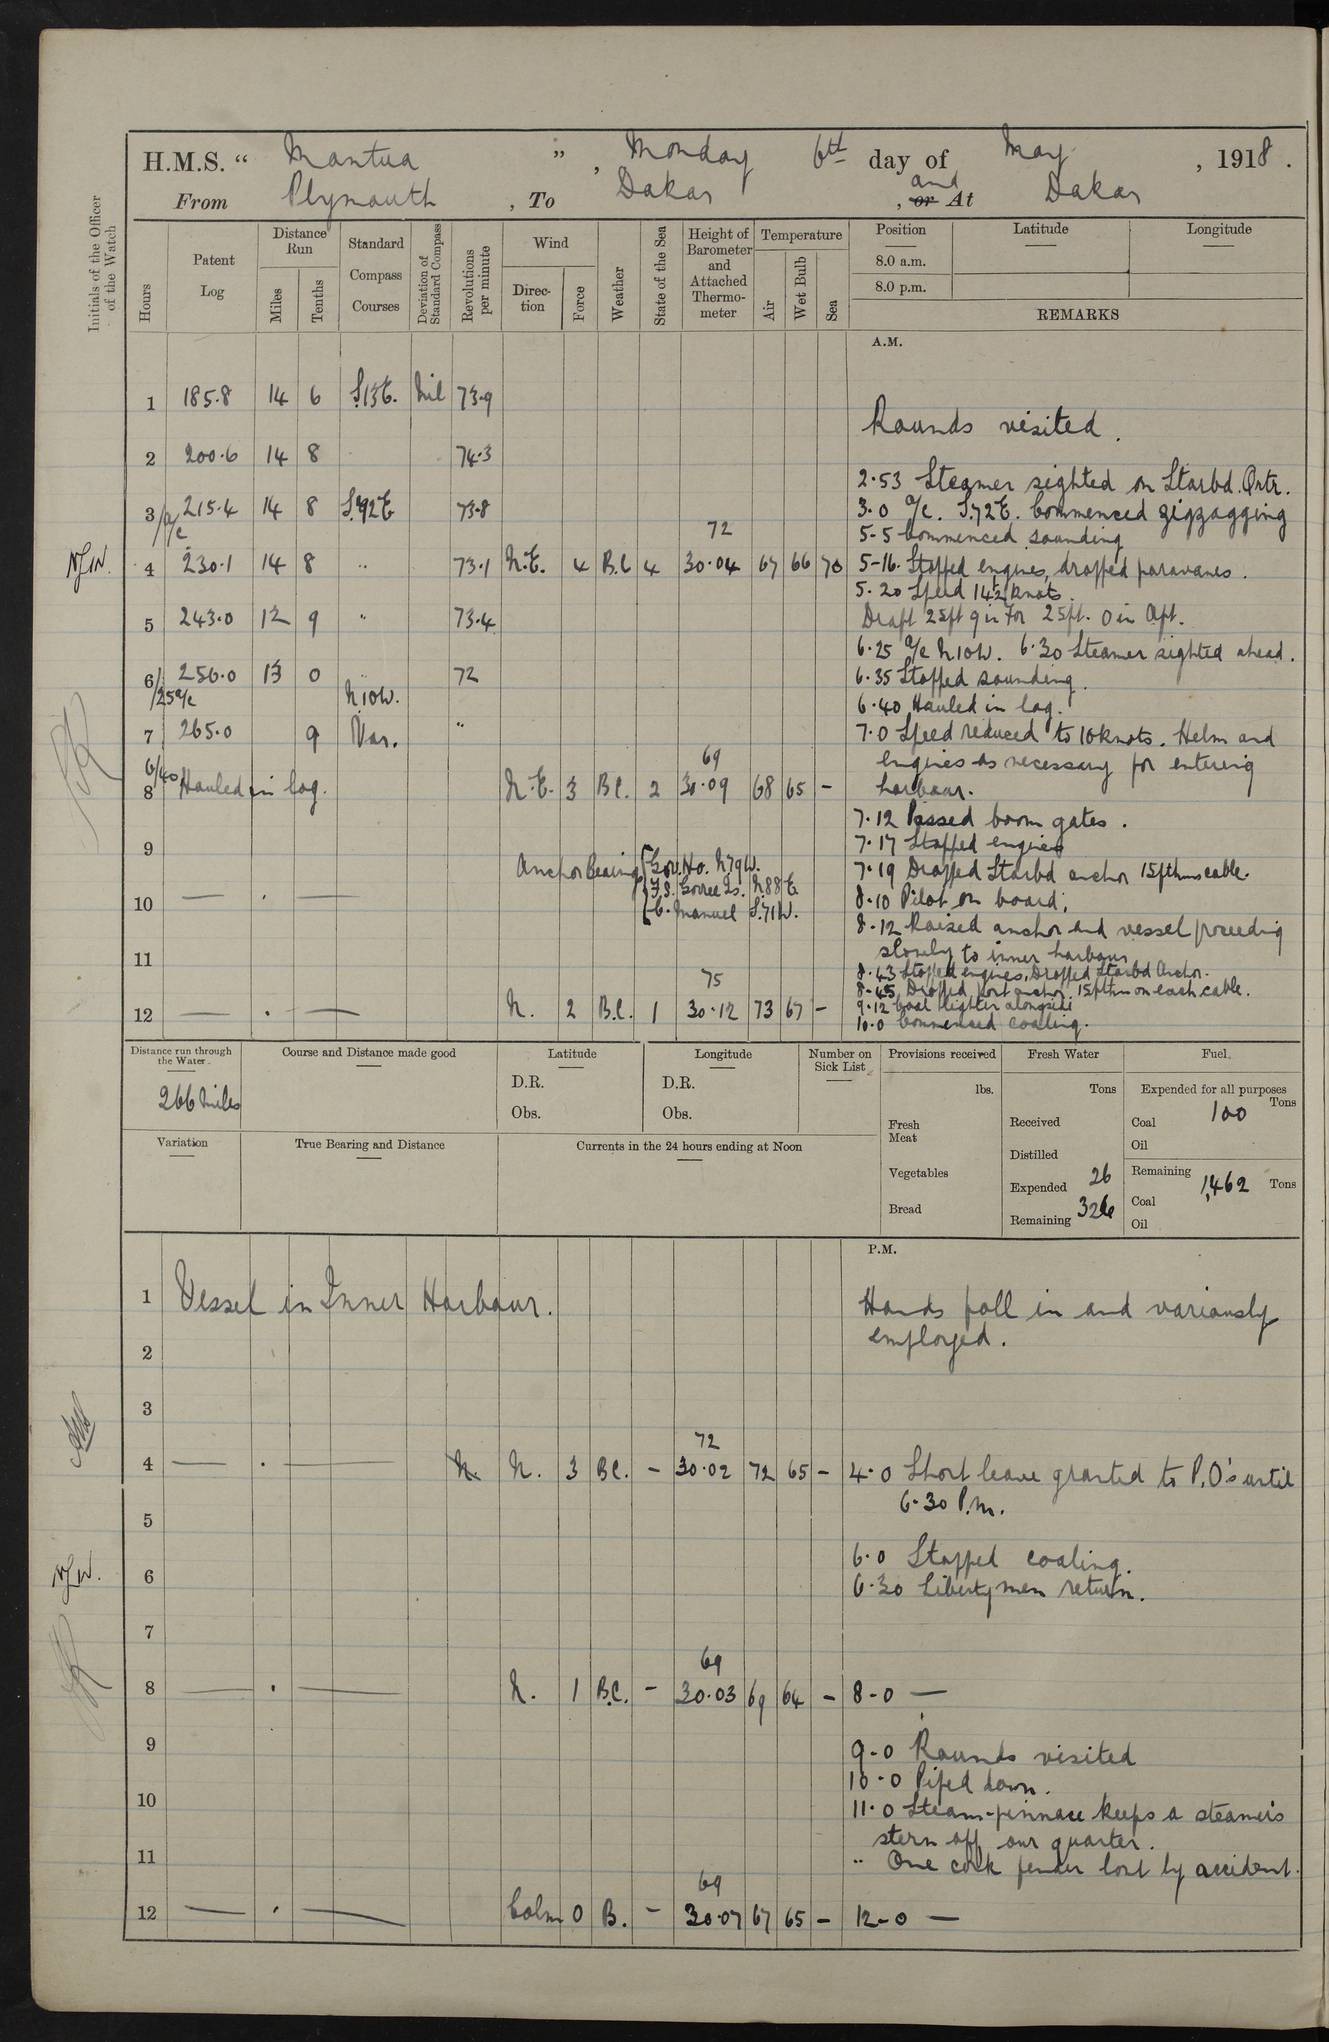 H.M.S. “ Mantua ” , Monday 6th day of May , 1918 .
From Plymouth , To Dakar , or and At Dakar
Initials of the Officer of the Watch
Hours
Patent Log
Distance Run
Miles
Tenths
Standard Compass Courses
Deviation of Standard Compass
Revolutions per minute
Wind
Direction
Force
Weather
State of the Sea
Height of Barometer and Attached Thermometer
Temperature
Air
Wet Bulb
Sea
Position Latitude Longitude
8.0 a.m.
8.0 p.m.
REMARKS
A.M.
1 185.8 14 6 S.13E. Nil 73.9
Rounds visited.
2 200.6 14 8 74.3
2.53 Steamer sighted on Starbd. Qrtr.
3 215.4 14 8 73.8
a/c
3.0 a/c. S.72E. Commenced zigzagging
72
5-5 Commenced sounding
4 230.1 14 8 " 73.1 N.E. 4 B.C 4 30.04 67 66 70
5-16. Stopped engines, dropped paravanes.
5.20 Speed 14½ knots.
5 243.0 12 9 " 73.4
Draft 25ft 9in For 25ft. 0in Aft.
6.25 a/c N.10W. 6.30 Steamer sighted ahead.
6 256.0 13 0 " 72
/25 a/c N.10W.
6.35 Stopped sounding.
6.40 Hauled in log.
7 265.0 9 Var. "
7.0 Speed reduced to 10knots. Helm and
engines as necessary for entering
harbour.
69
6/40
8 Hauled in log. N.E. 3 B.C. 2 30.09 68 65 -
7.12 Passed boom gates.
7.17 Stopped engines
9
Anchor Bearing { Gov. Ho. N79W.
7.19 Dropped Starbd anchor 15fthms cable.
F.S. Goree Is. N.88E
10 — . —
8.10 Pilot on board,
C. Manuel S.71W.
8.12 Raised anchor and vessel proceeding
slowly to inner harbour
11
75
8.43 Stopped engines, Dropped Starbd Anchor.
8-45 Dropped port anchor. 15fthm on each cable.
9.12 Coal lighter alongside
12 — . — N. 2 B.C. 1 30.12 73 67 -
10.0 Commenced coaling.
Distance run through the Water.
266 miles
Course and Distance made good
Latitude
D.R.
Obs.
Longitude
D.R.
Obs.
Number on Sick List
Provisions received
lbs.
Fresh Meat
Vegetables
Bread
Fresh Water
Tons
Received
Distilled
Expended 26
Remaining 326
Fuel.
Expended for all purposes
Coal 100 Tons
Oil
Remaining
Coal 1,462 Tons
Oil
Variation
True Bearing and Distance
Currents in the 24 hours ending at Noon
P.M.
1 Vessel in Inner Harbour.
Hands fall in and variously
employed.
2
3
72
4 — . — N. N. 3 B.C. - 30.02 72 65 -
4.0 Short leave granted to P.O's until
6.30 P.m.
5
6.0 Stopped coaling.
6
6.30 Liberty men return.
7
69
8 — . — N. 1 B.C. - 30.03 69 64 -
8-0 —
9
9-0 Rounds visited
10.0 Piped down.
10
11.0 Steam-pinnace keeps a steamer's
stern off our quarter.
11
" One cork fender lost by accident.
69
12 — . — Calm 0 B. - 30.07 67 65 -
12-0 —